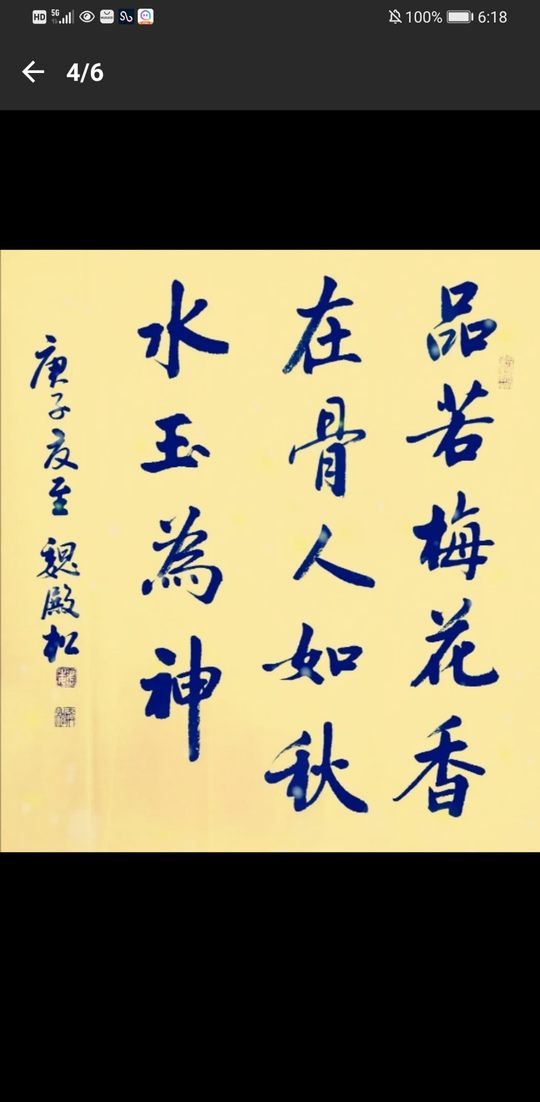 HD 5G 100% 6:18
4/6
品若梅花香
在骨人如秋
水玉為神
庚子夏至 魏殿松